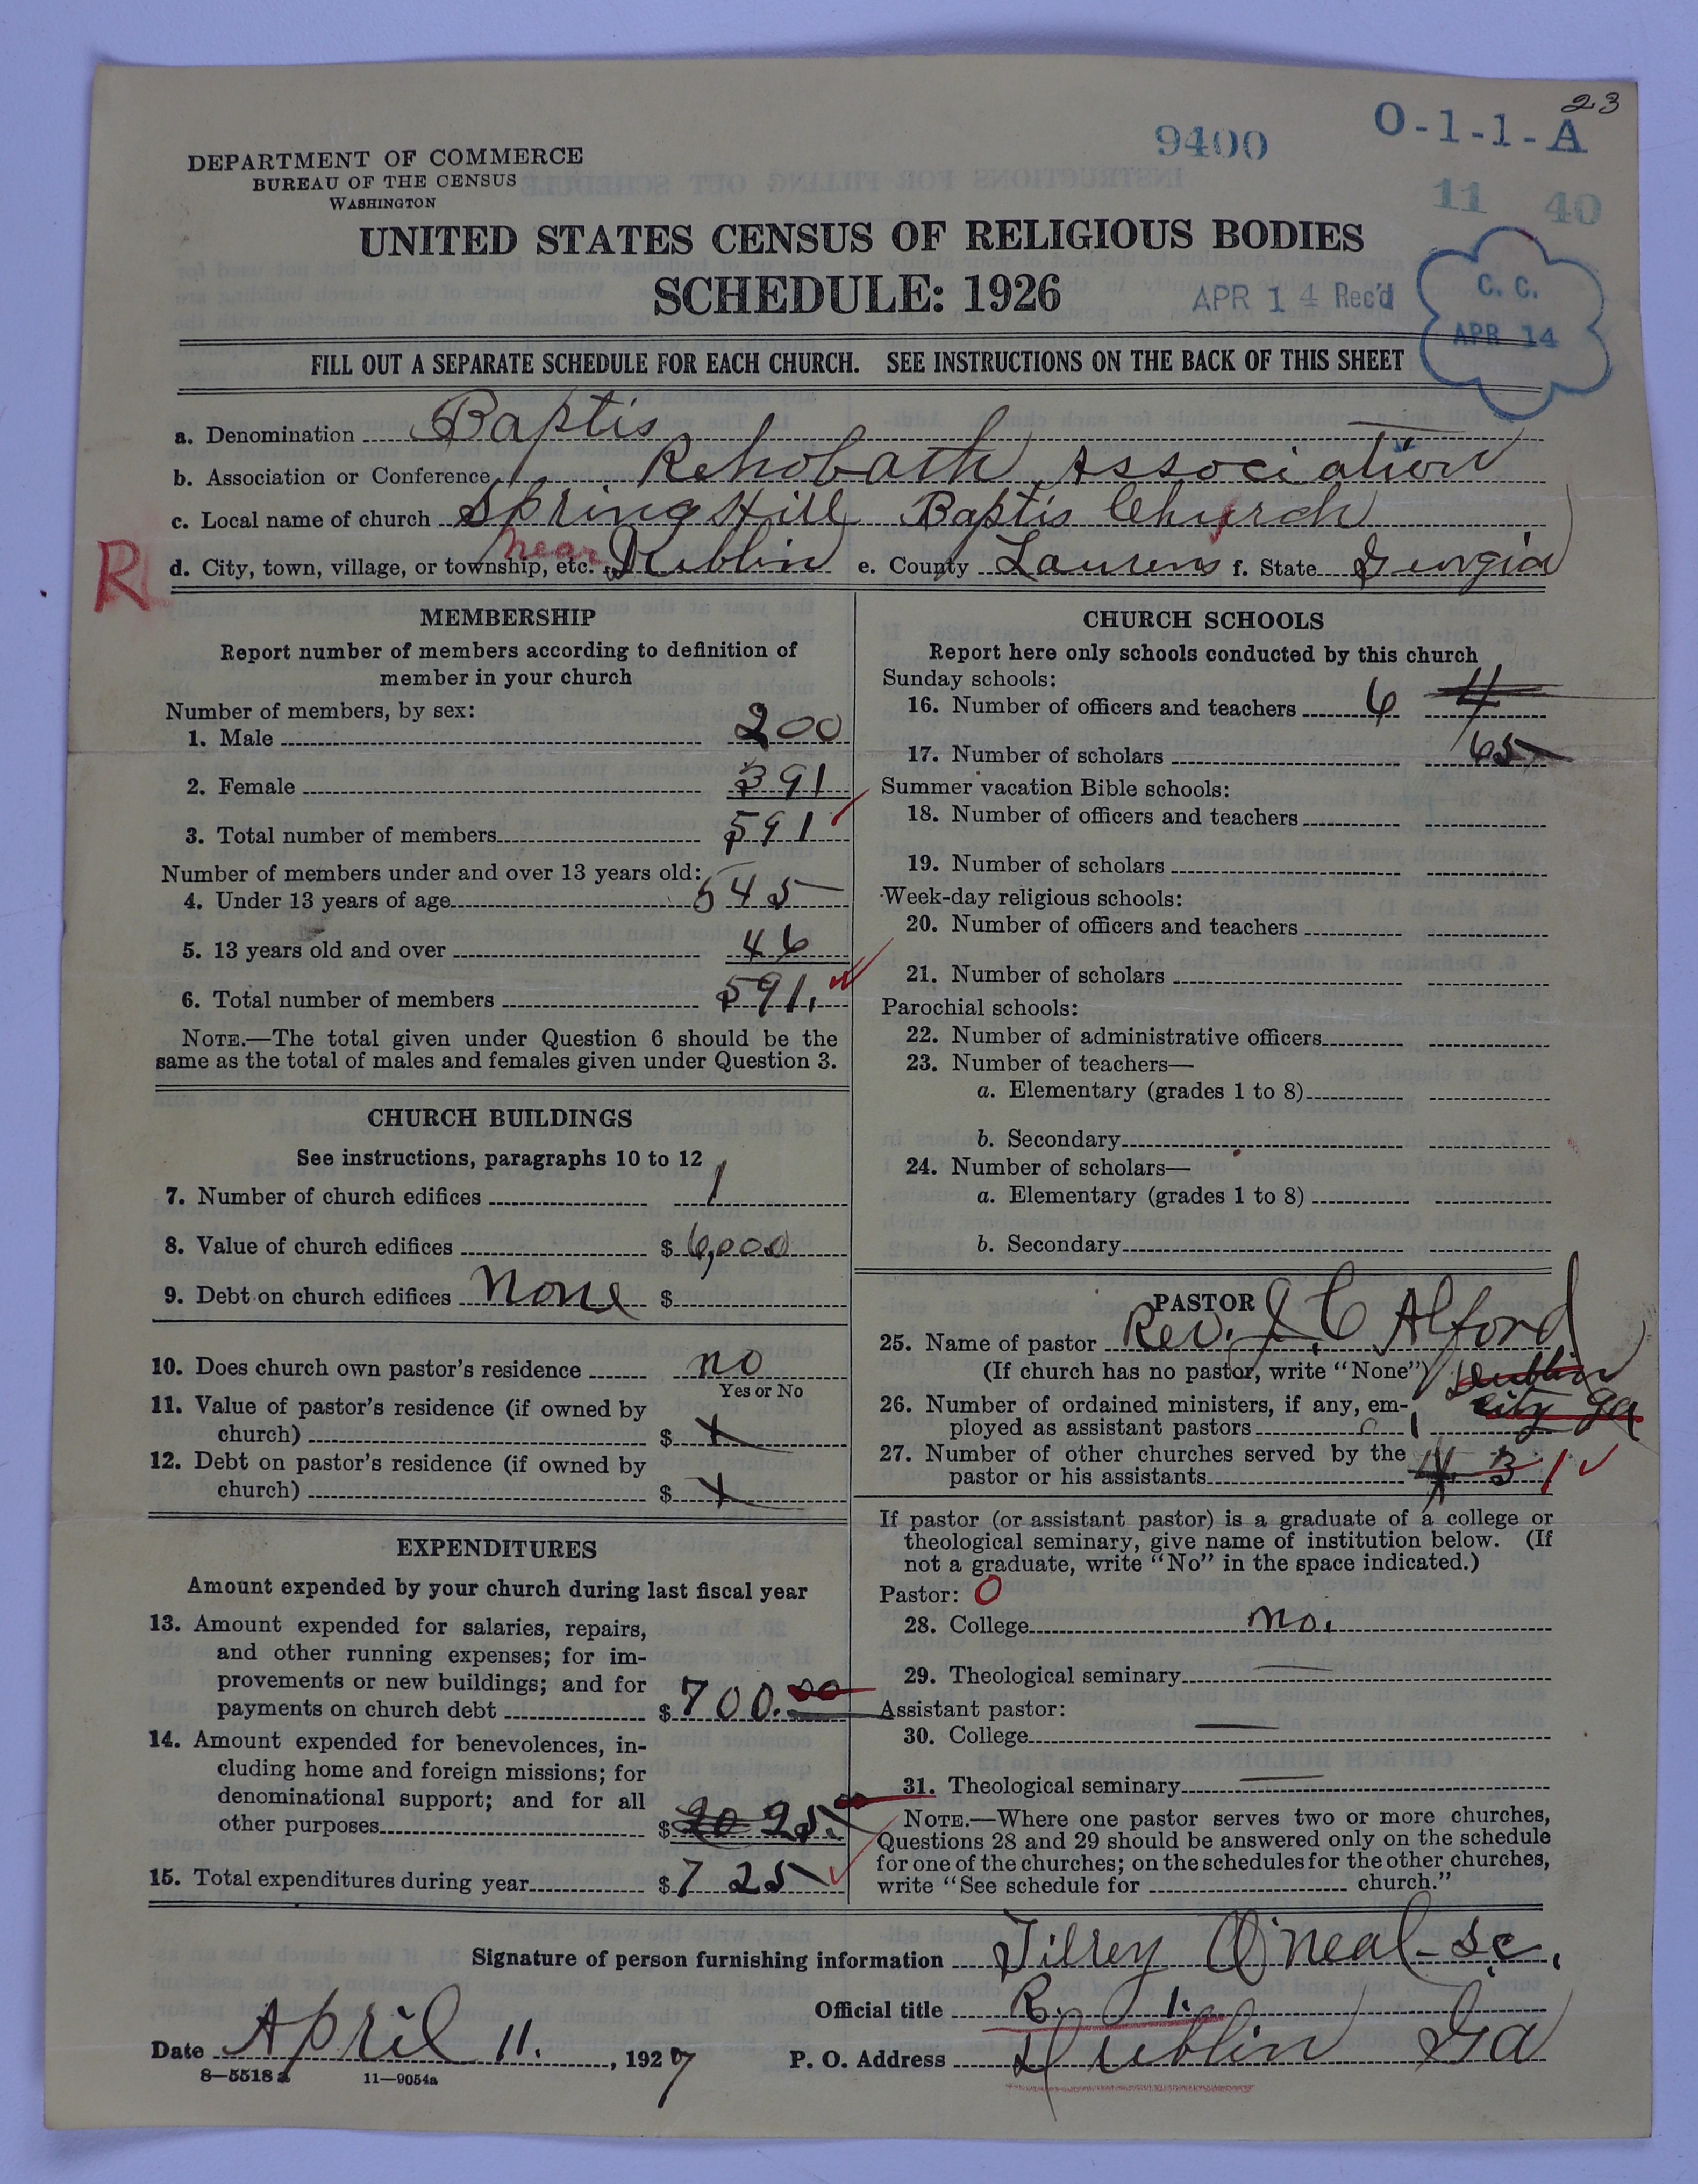 23
9400 O-1-1-A
DEPARTMENT OF COMMERCE
BUREAU OF THE CENSUS
WASHINGTON
11 40
UNITED STATES CENSUS OF RELIGIOUS BODIES
SCHEDULE: 1926
APR 14 Rec'd
C. C.
APR 14
FILL OUT A SEPARATE SCHEDULE FOR EACH CHURCH. SEE INSTRUCTIONS ON THE BACK OF THIS SHEET
a. Denomination Baptis
b. Association or Conference Rehobath Association
c. Local name of church Spring Hill Baptis Church
R
d. City, town, village, or township, etc. near Dublin e. County Laurens f. State Georgia
MEMBERSHIP
Report number of members according to definition of
member in your church
Number of members, by sex:
1. Male 200
2. Female 391
3. Total number of members 591
Number of members under and over 13 years old:
4. Under 13 years of age 545
5. 13 years old and over 46
6. Total number of members 591.
NOTE.—The total given under Question 6 should be the
same as the total of males and females given under Question 3.
CHURCH BUILDINGS
See instructions, paragraphs 10 to 12
7. Number of church edifices 1
8. Value of church edifices $ 6,000
9. Debt on church edifices None $
10. Does church own pastor's residence no
Yes or No
11. Value of pastor's residence (if owned by
church) $ x
12. Debt on pastor's residence (if owned by
church) $ x
EXPENDITURES
Amount expended by your church during last fiscal year
13. Amount expended for salaries, repairs,
and other running expenses; for im-
provements or new buildings; and for
payments on church debt $ 700.00
14. Amount expended for benevolences, in-
cluding home and foreign missions; for
denominational support; and for all
other purposes $ 20 25.
15. Total expenditures during year $ 725
CHURCH SCHOOLS
Report here only schools conducted by this church
Sunday schools:
16. Number of officers and teachers 6 4
17. Number of scholars 65
Summer vacation Bible schools:
18. Number of officers and teachers
19. Number of scholars
Week-day religious schools:
20. Number of officers and teachers
21. Number of scholars
Parochial schools:
22. Number of administrative officers
23. Number of teachers—
a. Elementary (grades 1 to 8)
b. Secondary
24. Number of scholars—
a. Elementary (grades 1 to 8)
b. Secondary
PASTOR
25. Name of pastor Rev. J. C Alford
(If church has no pastor, write "None") Dublin
26. Number of ordained ministers, if any, em- city Ga
ployed as assistant pastors
27. Number of other churches served by the
pastor or his assistants 4 3 1
If pastor (or assistant pastor) is a graduate of a college or
theological seminary, give name of institution below. (If
not a graduate, write "No" in the space indicated.)
Pastor: O
28. College no.
29. Theological seminary
Assistant pastor:
30. College
31. Theological seminary
NOTE.—Where one pastor serves two or more churches,
Questions 28 and 29 should be answered only on the schedule
for one of the churches; on the schedules for the other churches,
write "See schedule for church."
Signature of person furnishing information Tilrey O'neal sc.
Official title R. 1.
Date April 11. , 1927 P. O. Address Dublin Ga
8—5518a 11—9054a